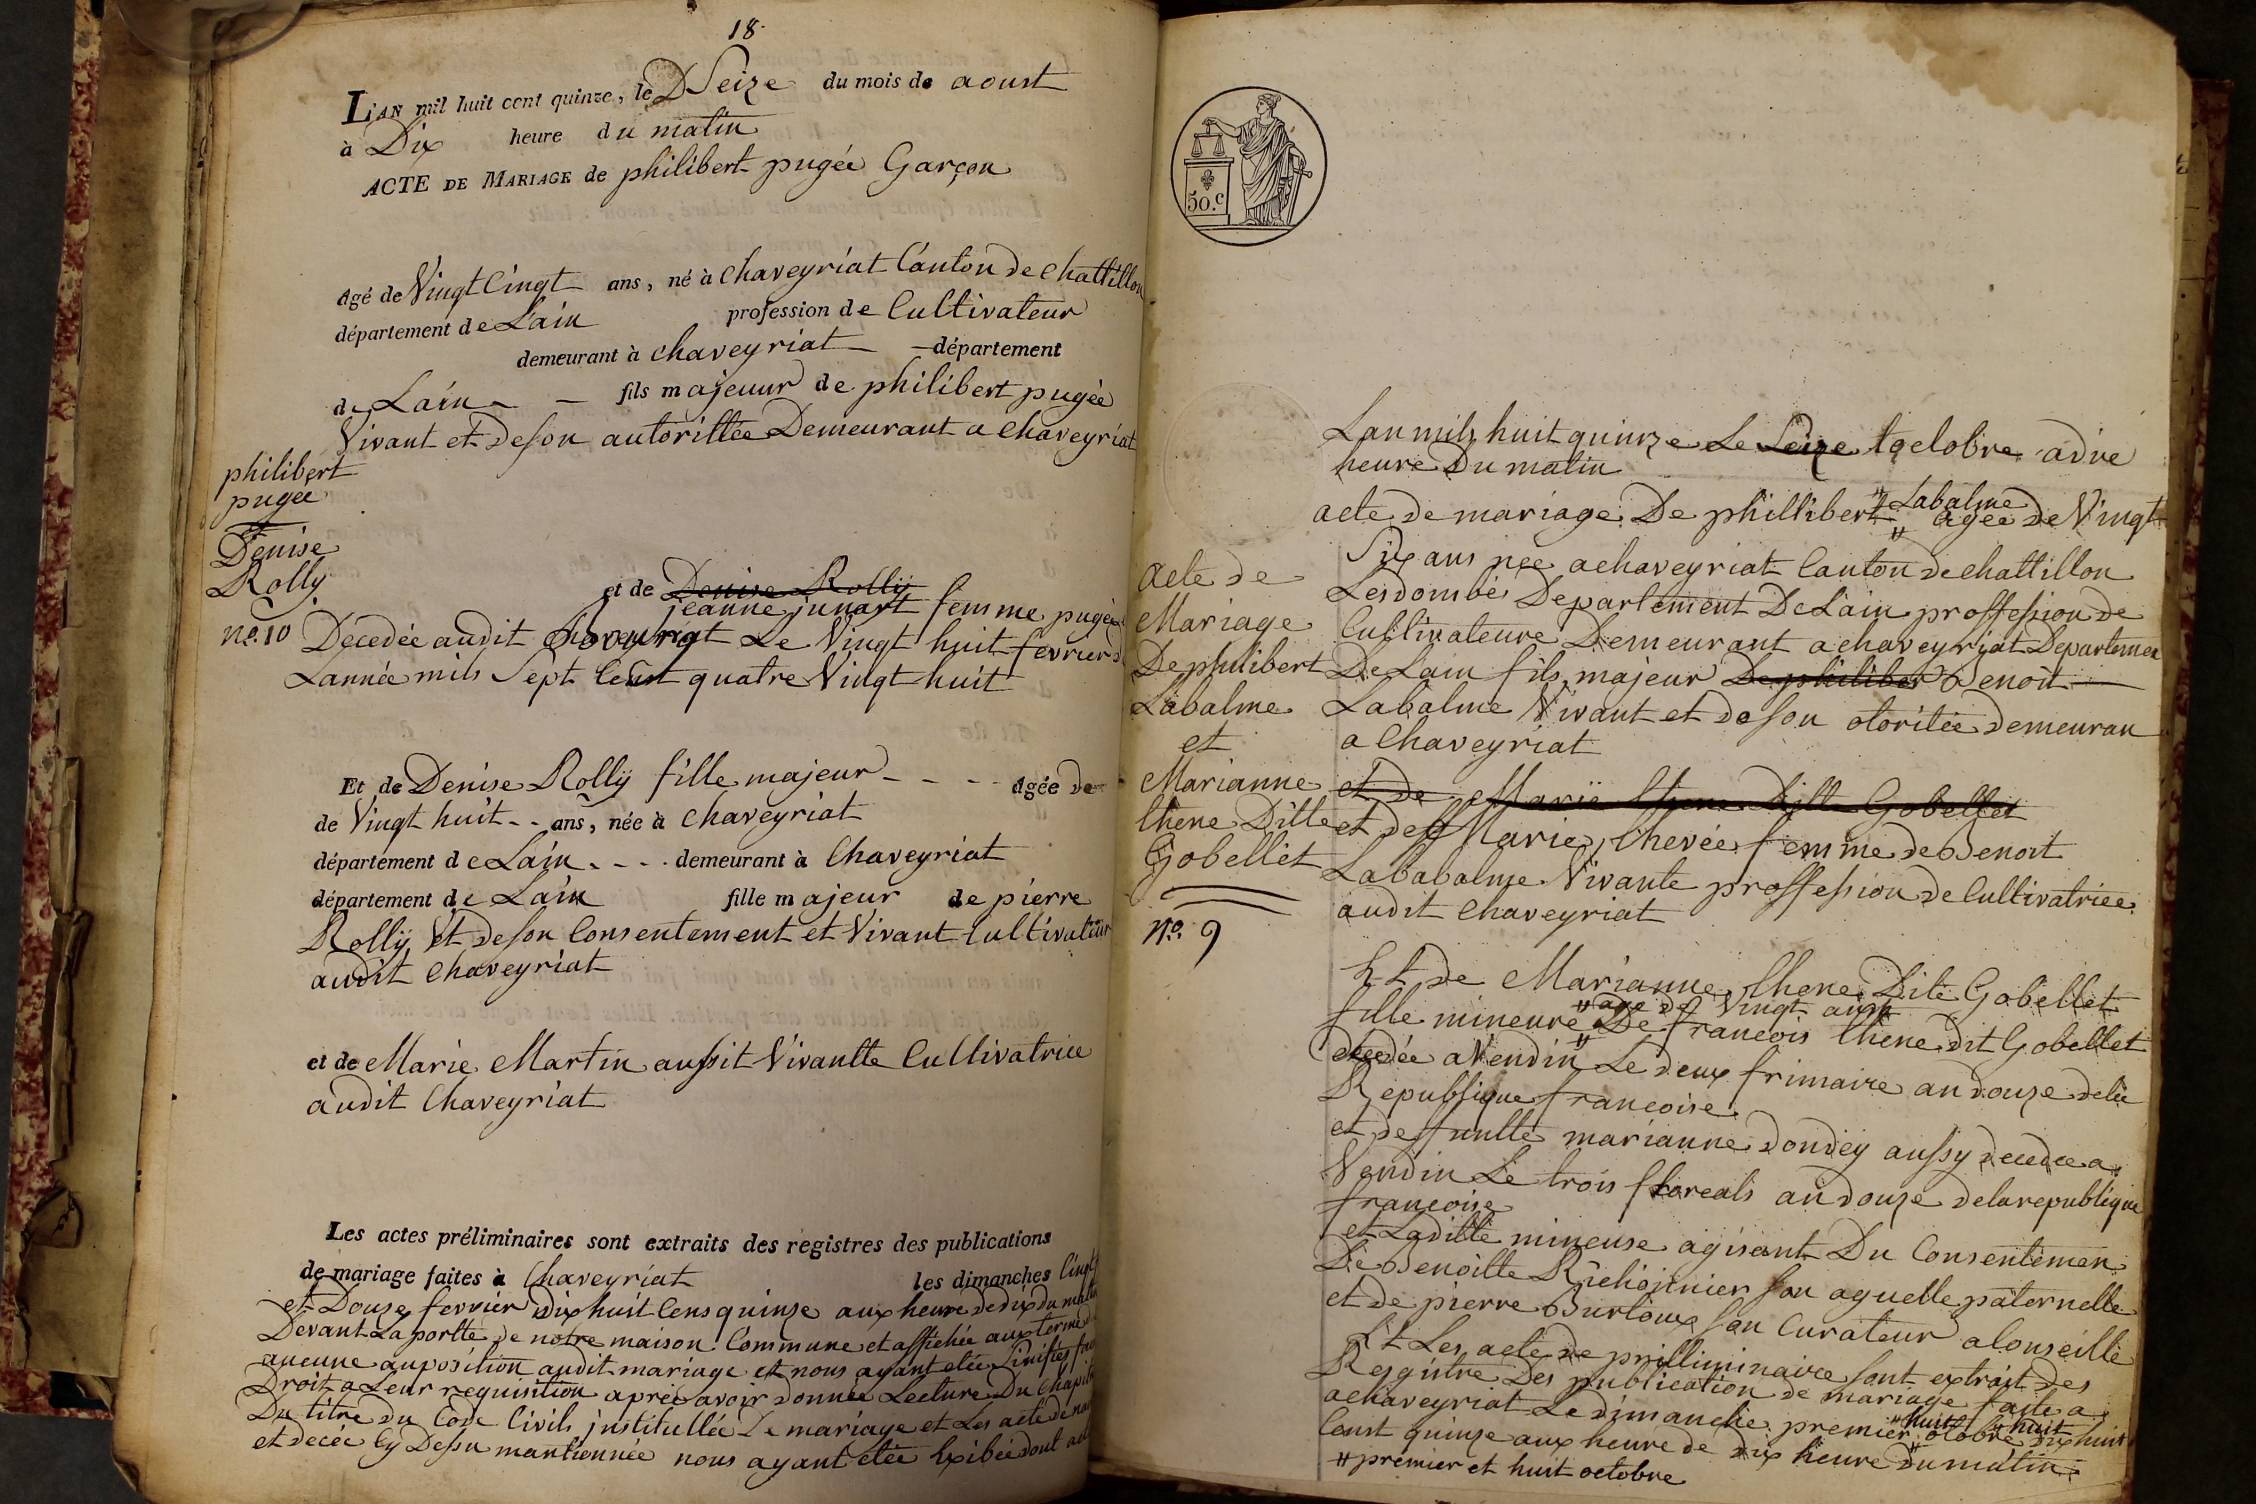 18.
L'AN mil huit cent quinze, le Seize du mois de aoust
à Dix heure du matin
ACTE DE MARIAGE de philibert pugée Garçon
Agé de Vingt Cinqt ans, né à Chaveyriat Canton de Chattillon
département de Lain profession de Cultivateur
demeurant à chaveyriat département
de Lain fils majeuur de philibert pugée
Vivant et de son autorittée Demeurant a Chaveyriat
philibert
pugée
et
Denise
Rolly
no. 10
et de Denise Rollÿ
jeanne junart femme pugée
Décedée audit Chaveyriat Le Vingt huit fevrier
Lannée mils Sept Cent quatre Vingt huit
Et de Denise Rollÿ fille majeur - - - Agée de
de Vingt huit - - ans, née à Chaveyriat
département de Lain - - - demeurant à Chaveyriat
département de Lain fille majeur de pierre
Rollÿ Et de son Consentement et Vivant Cultivateur
audit Chaveyriat
et de Marie Martin aussit Vivantte Cultivatrice
audit Chaveyriat
Les actes préliminaires sont extraits des registres des publications
de mariage faites à Chaveyriat les dimanches Cinqt
et Douze fevrier Dix huit Cens quinze aux heure de dix du matin
Devant La portte de notre maison Commune et affichée aux terme
aucunne auposition audit mariage et nous ayant etée
Droit a Leur requisition aprée avoir donnée Lecture Du Chapitre
Du titre du Code Civils justitullée De mariage et Les acte de
et decée Cy Dessu mantionnée nous ayant etée Exibée dont acte
50.c
Lan mils huit quinze Le Seize 19 octobre a dix
heure Du matin
acte de mariage De phillibert Labalme agée de Vingt
Six ans née a chaveyriat Canton de chattillon
Les dombes Departement De Lain proffession de
Cultivateure Demeurant a chaveyriat Departemen
De Lain fils majeur De philiber Benoit
Labalme Vivant et de son otoritée demeuran
a Chaveyriat
acte de
Mariage
De philibert
Labalme
et
Marianne
Chene Ditte
Gobellet
No. 9
et de Marie Chene Ditte Gobellet
et de Marie Chevée femme de Benoit
Lababalme Vivante proffession de Cultivatrice
audit Chaveyriat
Et de Marianne Chene Dite Gobellet
fille mineure age de Vingt ans De francois Chene dit Gobellet
decedée a Vendin Le deux frimaire an douze de la
Republique francoise
et deffuntte marianne Dondey aussy decedee a
Vendin Le trois floreals an douze de la republique
francoise
et Laditte mineuse agisant Du Consentemen
De Benoitte son aguelle paternelle
et de pierre Burtoux son Curateur a lonseille
Et Les acte de prilliminaire sont extrait des
Resgitre Des publication de mariage faite a
a chaveyriat Le dimanche premier huit octobre dix huit
Cent quinze aux heure de dix heure Du matin
premier et huit octobre